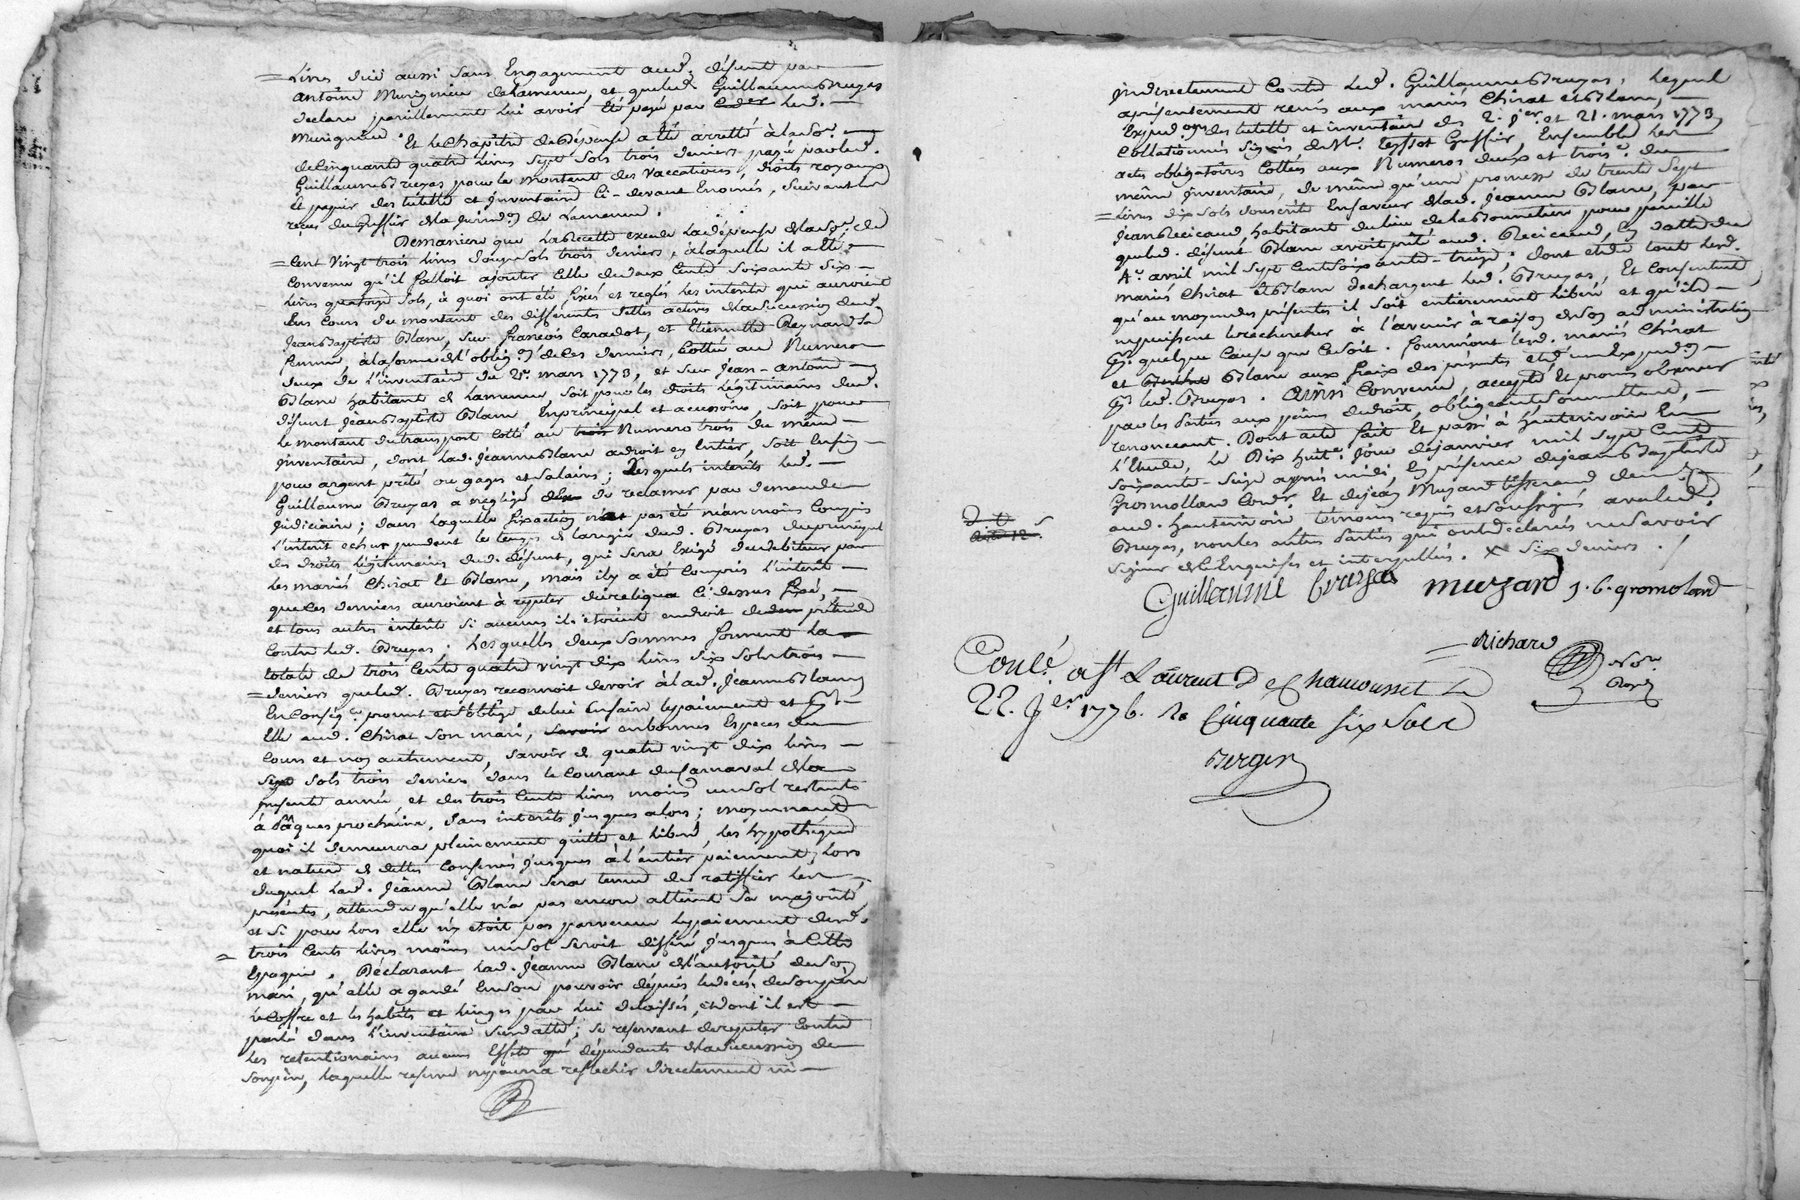 Livres düe aussi sans Engagement aud. défunt par
Antoine Murignieu de Lamure, et que led. Guillaume Bruyas
declare pareillement lui avoir été payé par led.
Murignieu. Et le Chapitre de dépense a été arretté à la so.e
de Cinquante quatre Livres sept sols trois deniers payé par led.
Guillaume Bruyas pour le montant des vaccations, droits royaux
et papier des tutelle et inventaire ci-devant Enoncés, suivant les
reçus du Greffier de la jurisd.on de Lamure.
De maniere que la Recette excede la dépense de la so.e de
Cent vingt trois livres douze sols trois deniers, à laquelle il a été
Convenu qu'il falloit ajouter celle de deux Cents soixante six
Livres quatorze sols, à quoi ont été fixés et reglés les interêts qui auroient
eus cours du montant des differentes dettes actives de la succession dud.
Jean Baptiste Blanc, sur françois Caradot, et Etiennette Reynard sa
femme, à la forme de l'oblig.on de ces derniers, Cottée au Numero
deux de l'inventaire du 21. mars 1773, et sur Jean-antoine
Blanc habitant de Lamure, soit pour les droits Légitimaires dud.
défunt Jean Baptiste Blanc En principal et accessoire, soit pour
le montant du transport Cotté au Numero trois du même
inventaire, dont lad. Jeanne Blanc a droit en Entier, soit Enfin
pour argent prêté ou gages et salaires; Lesquels interêts led.
Guillaume Bruyas a négligé de reclamer par demande
judiciaire; dans laquelle fixation n'a pas été néanmoins Compris
l'interêt echus pendant le temps de la regie dud. Bruyas du principal
des droits légitimaires dud. défunt, qui sera Exigé du debiteur par
les mariés Chirat et Blanc, mais il y a été Compris l'interêt
que ces derniers auroient à repeter du reliqua ci dessus fixé,
et tous autres interêts si aucuns ils étoient en droit de prétendre
Contre led. Bruyas. Lesquelles deux sommes forment la
totale de trois Cents quatre vingt dix livres six sols trois
deniers que led. Bruyas reconnoit devoir à lad. Jeanne Blanc
En Conséq.ce promet et s'oblige de lui En faire le paiement et
Elle aud. Chirat son mari, en bonnes Especes du
Cours et non autrement, savoir de quatre vingt dix livres
sept sols trois deniers dans le Courant du Carnaval de la
présente année, et des trois Cents livres moins un sol restants
à Pâques prochaine, sans interêts jusques alors; moyennant
quoi il demeurera pleinement quitte et liberé, les hypothéques
et nature de dettes Conservés jusques à l'entier paiement, lors
duquel lad. Jeanne Blanc sera tenue de ratifier les
présentes, attendu qu'elle n'a pas encore atteint sa majorité
et si pour lors elle n'y étoit pas parvenue le paiement desd.
trois Cents livres moins un sol seroit differé jusques à Cette
Epoque. Déclarant lad. Jeanne Blanc de l'autorité de son
mari, qu'elle a gardé En son pouvoir depuis le décés de son père
le Coffre et les habits et linges par lui delaissés, et dont il est
parlé dans l'inventaire susdatté; se reservant de repeter Contre
les retentionaires aucuns Effets dépendants de la succession de
son père, laquelle reserve ne pourra reflechir directement ni
indirectement Contre led. Guillaume Bruyas, Lequel
a présentement remis aux mariés Chirat et Blanc,
Exped.on des tutelle et inventaire des 2. j.er et 21. mars 1773
Collationnés signés de M.e Teyssot Greffier, Ensemble les
actes obligatoires Cottés aux Numeros deux et trois du
même inventaire, de même qu'une promesse de trente sept
Livres dix sols souscrite En faveur de lad. Jeanne Blanc, par
Jean Recicaud habitant du lieu de la Bonnetiere pour pareille
que led. défunt Blanc avoit prêté aud. Recicaud, En datte du
4.e avril mil sept Cent soixante-treize; dont et de tout lesd.
mariés Chirat et Blanc dechargent led. Bruyas, Et Consentent
qu'au moyen des présentes il soit entierement liberé et qu'ils
ne puissent le rechercher à l'avenir à raison de son administration
En quelque Cause que Ce soit. fourniront lesd. mariés Chirat
et Blanc aux fraix des présentes et d'une Exped.on
En led. Bruyas. Ainsi Convenu, accepté Et promis observer
par les Parties aux peines de droit, obligeant, soumettant,
renonceant. Dont acte fait Et passé à hauterivoire En
l'Etude, le Dix huit.e Jour de janvier mil sept Cents
soixante-seize après midi, En présence de jean Baptiste
Gromollard Cord.r Et de jean Muzard tisserand dem.t
aud. hauterivoire témoins requis et soussignés avec led.
Bruyas, non les autres Parties qui ont declarés ne savoir
signer de ce Enquises et interpellés. X six deniers.
Guillaume bruyas muzard j. b. gromolard
Richard
No.re
Roy.l
Conlé. a St Laurent De Chamousset Le
22. J.er 1776. Re Cinquante six sols
Berger